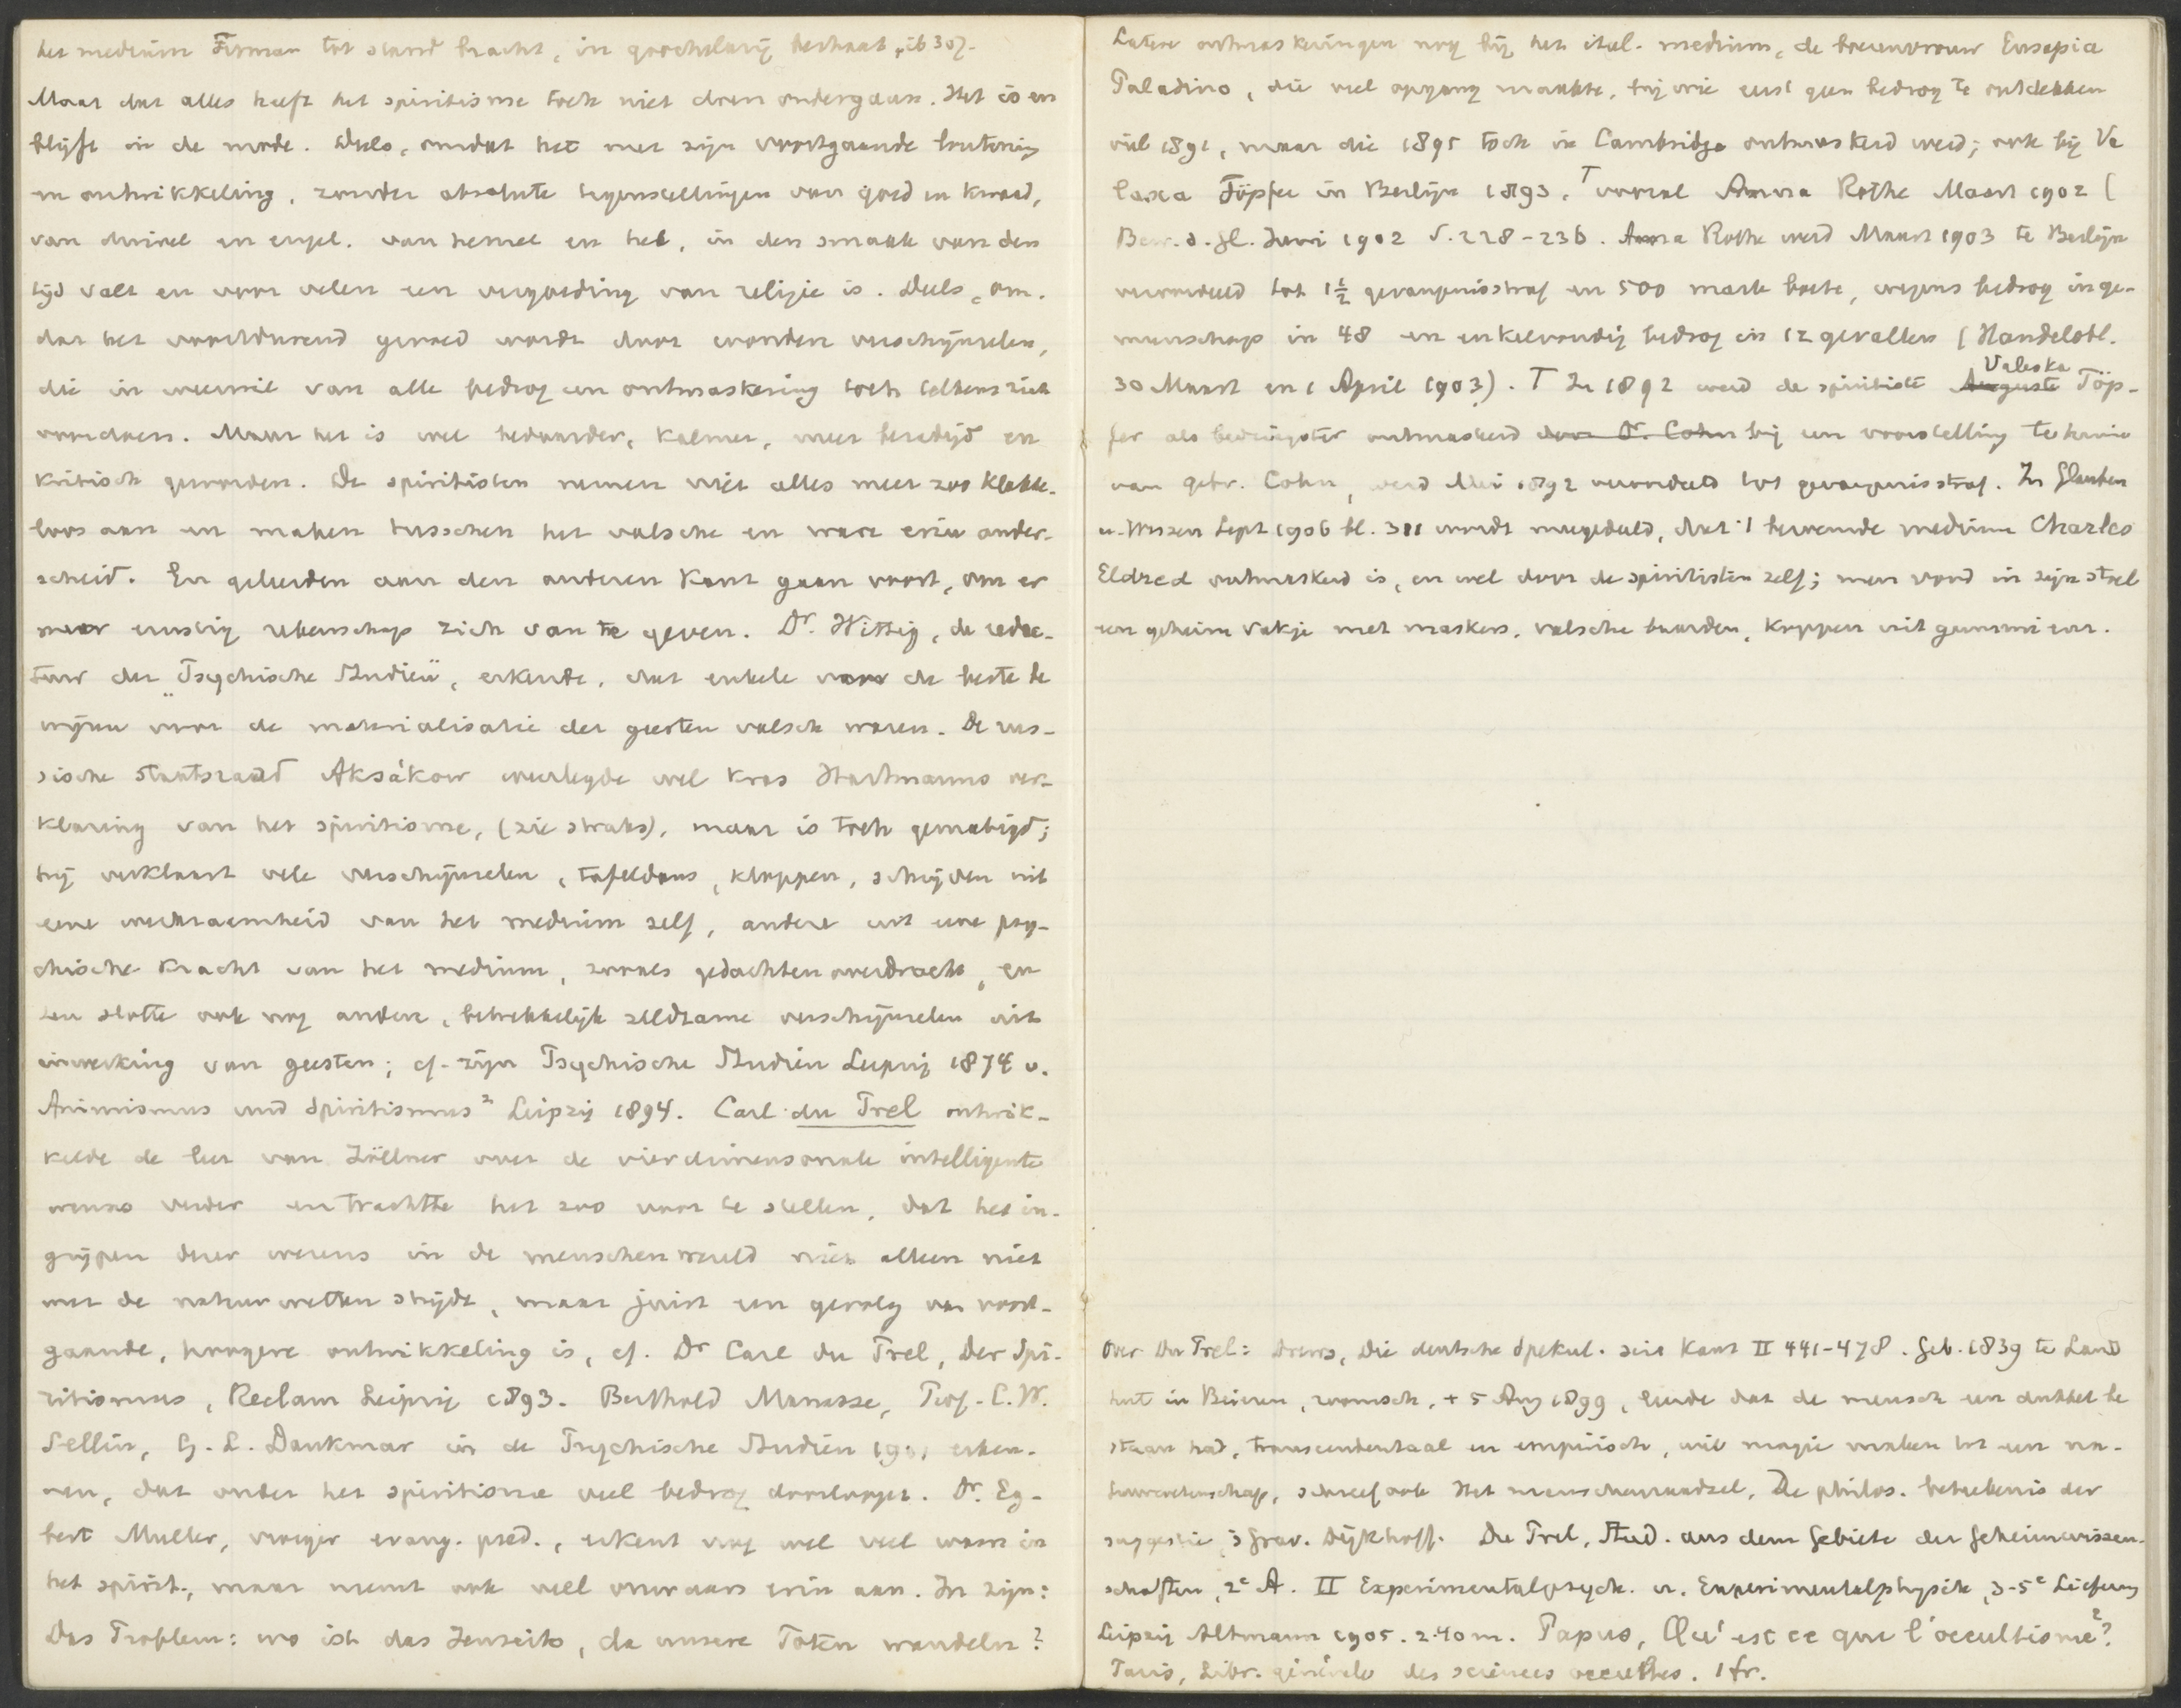 het medium Firman tot stand bracht, in goochelarij bestaat, ib 307.
Maar dat alles heeft het spiritisme toch niet doen ondergaan. Het is en
blijft in de mode. Deels, omdat het met zijn voortgaande loutering
en ontwikkeling, zonder absolute tegenstellingen van goed en kwaad,
van duivel en engel, van hemel en hel, in den smaak van den
tijd valt en voor velen een vergoeding van religie is. Deels, om-
dat het voortdurend gevoed wordt door wondere verschijnselen,
die in weerwil van alle bedrog en ontmaskering toch telkens zich
voordoen. Maar het is wel bedaarder, kalmer, meer bezadigd en
kritisch geworden. De spiritisten nemen niet alles meer zoo klakke-
loos aan en maken tusschen het valsche en ware erin onder-
scheid. En geleerden aan den anderen kant gaan voort, om er
meer ernstig rekenschap zich van te geven. Dr. Wittig, de redac-
teur der "Psychische Studien", erkende, dat enkele voor de beste be
wijzen voor de materialisatie der geesten valsch waren. De rus-
sische staatsraad Aksákow weerlegde wel kras Hartmanns ver-
klaring van het spiritisme, (zie straks), maar is toch gematigd;
hij verklaart vele verschijnselen, tafeldans, kloppen, schrijven uit
eene werkzaamheid van het medium zelf, andere uit eene psy-
chische kracht van het medium, zooals gedachtenoverdracht, en
ten slotte ook nog andere, betrekkelijk zeldzame verschijnselen uit
inwerking van geesten; cf. zijn Psychische Studien Leipzig 1874 v.
Animismus und Spiritismus² Leipzig 1894. Carl du Prel ontwik-
kelde de leer van Zöllner over de vierdimensonale intelligente
wezens verder en trachtte het zoo voor te stellen, dat het in-
grijpen dezer wezens in de menschenwereld niet alleen niet
met de natuurwetten strijdt, maar juist een gevolg van voort-
gaande, hoogere ontwikkeling is, cf. Dr Carl du Prel, Der Spi-
ritismus, Reclam Leipzig 1893. Berthold Manasse, Prof. C.W.
Sellin, G.L. Dankmar in de Psychische Studien 1901 erken-
nen, dat onder het spiritisme veel bedrog doorloopt. Dr. Eg-
bert Muller, vroeger evang. pred., erkent nog wel veel waars in
het spirit., maar neemt ook veel onwaars erin aan. In zijn:
Das Problem: wo ist das Jenseits, da unsere Toten wandeln?
Latere ontmaskeringen nog bij het ital. medium, de boerenvrouw Eusapia
Paladino, die veel opgang maakte, bij wie eerst geen bedrog te ontdekken
viel 1891, maar die 1895 toch in Cambridge ontmaskerd werd; ook bij Va
lesca Töpfer in Berlijn 1893. T vooral Anna Rothe Maart 1902 (
Bew. d. Gl. Juni 1902 S. 228-236. Anna Rothe werd Maart 1903 te Berlijn
veroordeeld tot 1½ gevangenisstraf en 500 mark boete, wegens bedrog in ge-
meenschap in 48 en enkelvoudig bedrog in 12 gevallen (Handelsbl.
30 Maart en 1 April 1903). T In 1892 werd de spiritiste Auguste Valeska Töp-
fer als bedriegster ontmaskerd door Dr. Cohn bij een voorstelling te huize
van gebr. Cohn, werd Mei 1892 veroordeeld tot gevangenisstraf. In Glauben
u. Wissen Sept 1906 bl. 311 wordt meegedeeld, dat 't beroemde medium Charles
Eldred ontmaskerd is, en wel door de spiritisten zelf; men vond in zijn stoel
een geheim vakje met maskers, valsche baarden, koppen uit gummi enz.
Over Du Prel: Drews, Die deutsche Spekul. seit Kant II 441-478. Geb. 1839 te Land
hut in Beieren, roomsch, + 5 Aug 1899, leerde dat de mensch een dubbel be
staan had, transcendentaal en empirisch, wil magie maken tot een na-
tuurwetenschap, schreef ook Het menschenraadsel, De philos. beteekenis der
suggestie, 's Grav. Dijkhoff. Du Prel, Stud. aus dem Gebiete der Geheimwissen-
schaften, 2e A. II Experimentalpsych. u. Experimentalphysik, 3-5e Lieferung
Leipzig Altmann 1905. 2.40 m. Papus, Qu'est ce que l'occultisme²?
Paris, Libr. générale des sciences occultes. 1 fr.